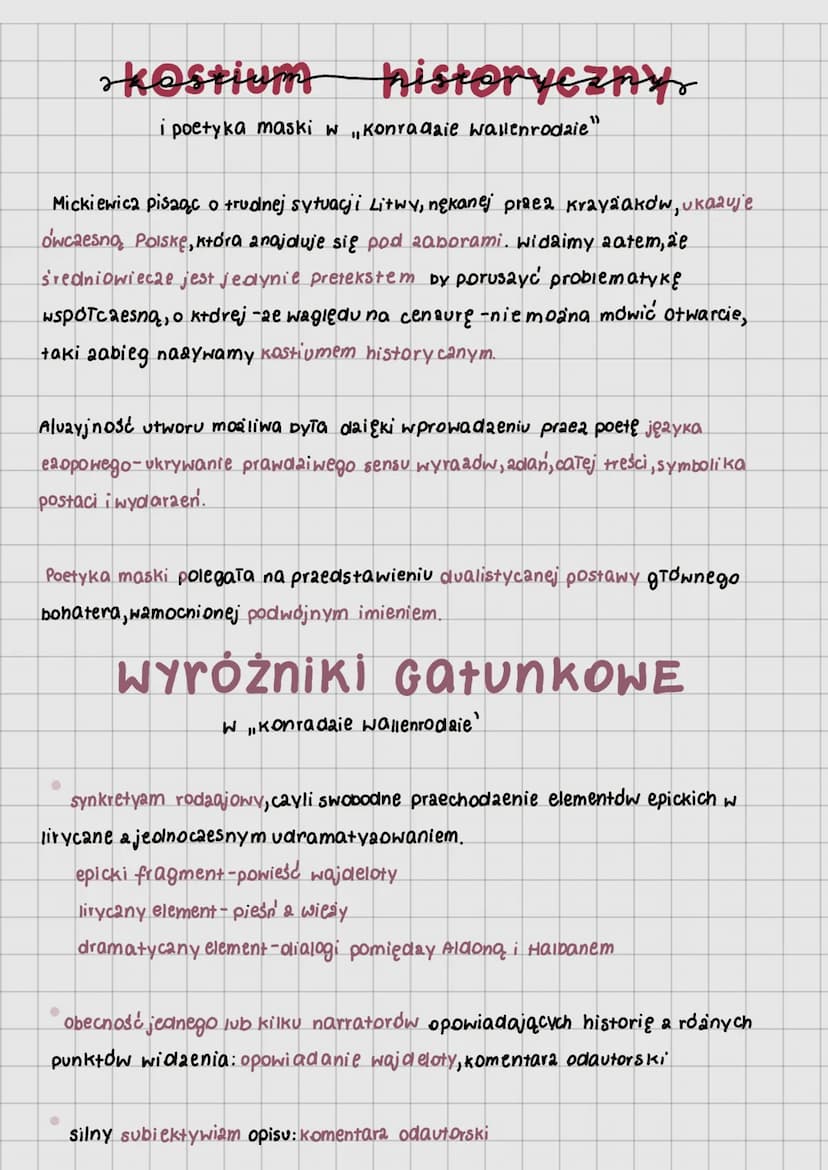 kostium historyczny
i poetyka maski w „Konradzie Wallenrodzie"
Mickiewicz pisząc o trudnej sytuacji Litwy, nękanej przez Krzyżaków, ukazuje
ówczesną Polskę, która znajduje się pod zaborami. Widzimy zatem, że
średniowiecze jest jedynie pretekstem by poruszyć problematykę
współczesną, o której - ze względu na cenzurę - nie można mówić otwarcie,
taki zabieg nazywamy kostiumem historycznym.
Aluzyjność utworu możliwa była dzięki wprowadzeniu przez poetę języka
ezopowego - ukrywanie prawdziwego sensu wyrazów, zdań, całej treści, symbolika
postaci i wydarzeń.
Poetyka maski polegała na przedstawieniu dualistycznej postawy głównego
bohatera, wzmocnionej podwójnym imieniem.
WYRÓŻNIKI GATUNKOWE
w „Konradzie Wallenrodzie"
• synkretyzm rodzajowy, czyli swobodne przechodzenie elementów epickich w
liryczne z jednoczesnym udramatyzowaniem.
epicki fragment - powieść wajdeloty
liryczny element - pieśń z wieży
dramatyczny element - dialogi pomiędzy Aldoną i Halbanem
• obecność jednego lub kilku narratorów opowiadających historię z różnych
punktów widzenia: opowiadanie wajdeloty, komentarz odautorski
• silny subiektywizm opisu: komentarz odautorski